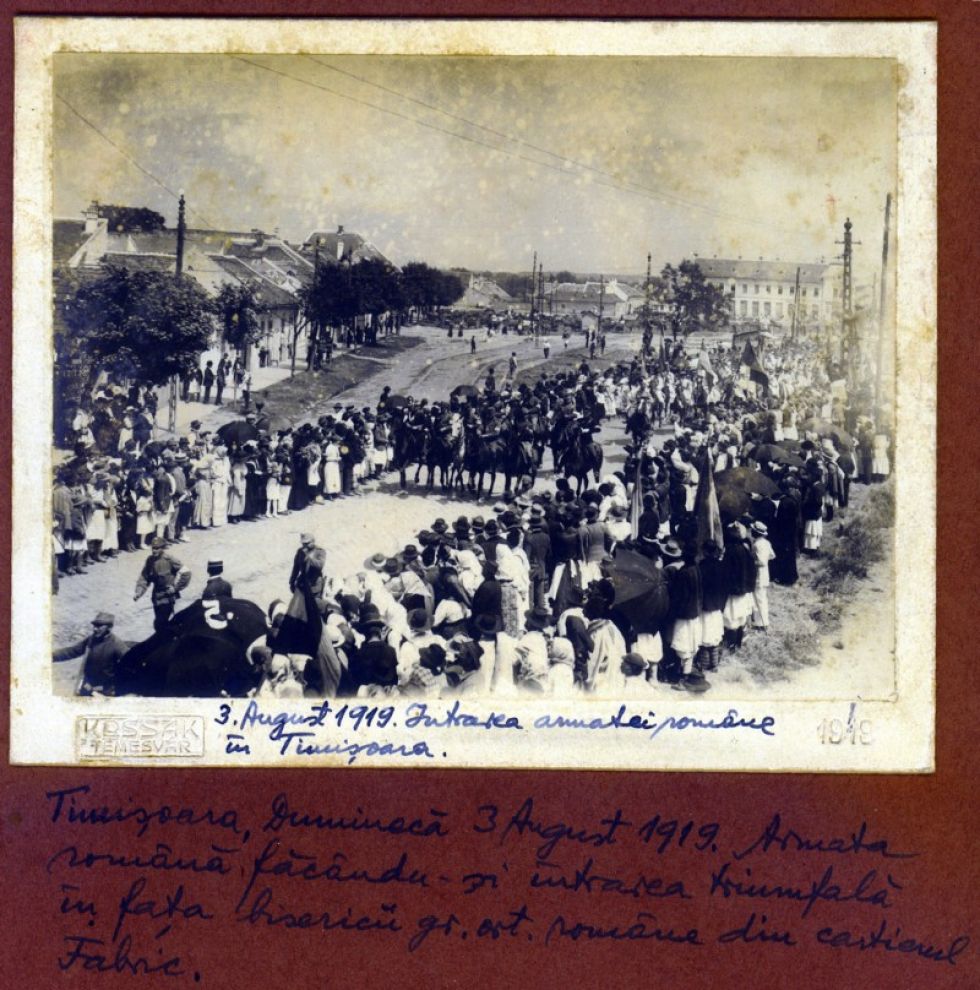 KOSSAK
TEMESVÁR
3. August 1919. Intrarea armatei române
în Timișoara.
1919
Timișoara, Duminecă 3 August 1919. Armata
română făcându-și intrarea triumfală
în fața bisericii gr. ort. române din cartierul
Fabric.